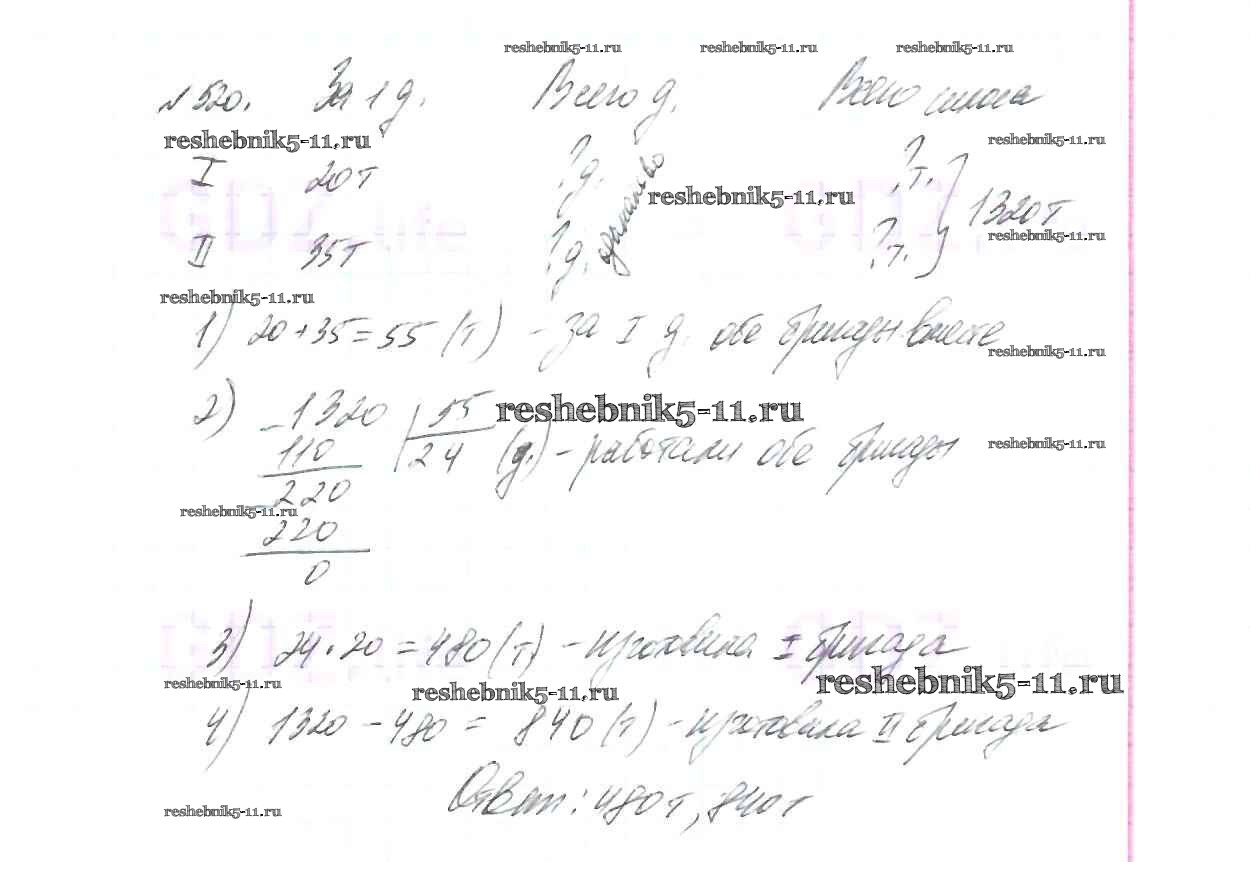 reshebnik5-11.ru reshebnik5-11.ru reshebnik5-11.ru
№ 520. За 1 д. Всего д. Всего силоса
reshebnik5-11.ru reshebnik5-11.ru
I 20т ?д. одинаково ?т. 1320т
reshebnik5-11.ru
GDZ.life GDZ
II 35т ?д. ?т.
reshebnik5-11.ru
reshebnik5-11.ru
1) 20+35=55 (т) - за I д. обе бригады вместе
reshebnik5-11.ru
2) - 1320 | 55 reshebnik5-11.ru
110 24 (д.) - работали обе бригады reshebnik5-11.ru
- 220
reshebnik5-11.ru
220
0
GDZ GDZ
3) 24 · 20 = 480 (т) - изготовила I бригада
reshebnik5-11.ru reshebnik5-11.ru reshebnik5-11.ru
4) 1320 - 480 = 840 (т) - изготовила II бригада
Ответ: 480т, 840т
reshebnik5-11.ru